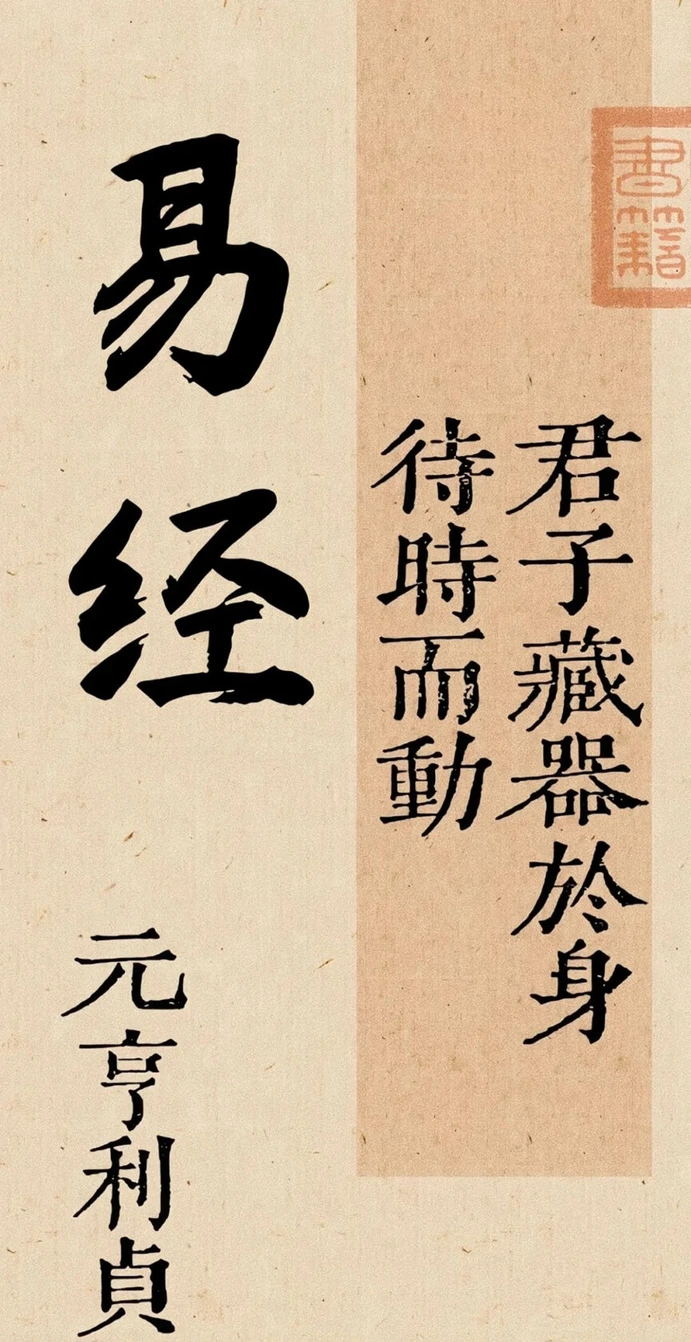 書籍
君子藏器於身
待時而動
易经
元亨利貞